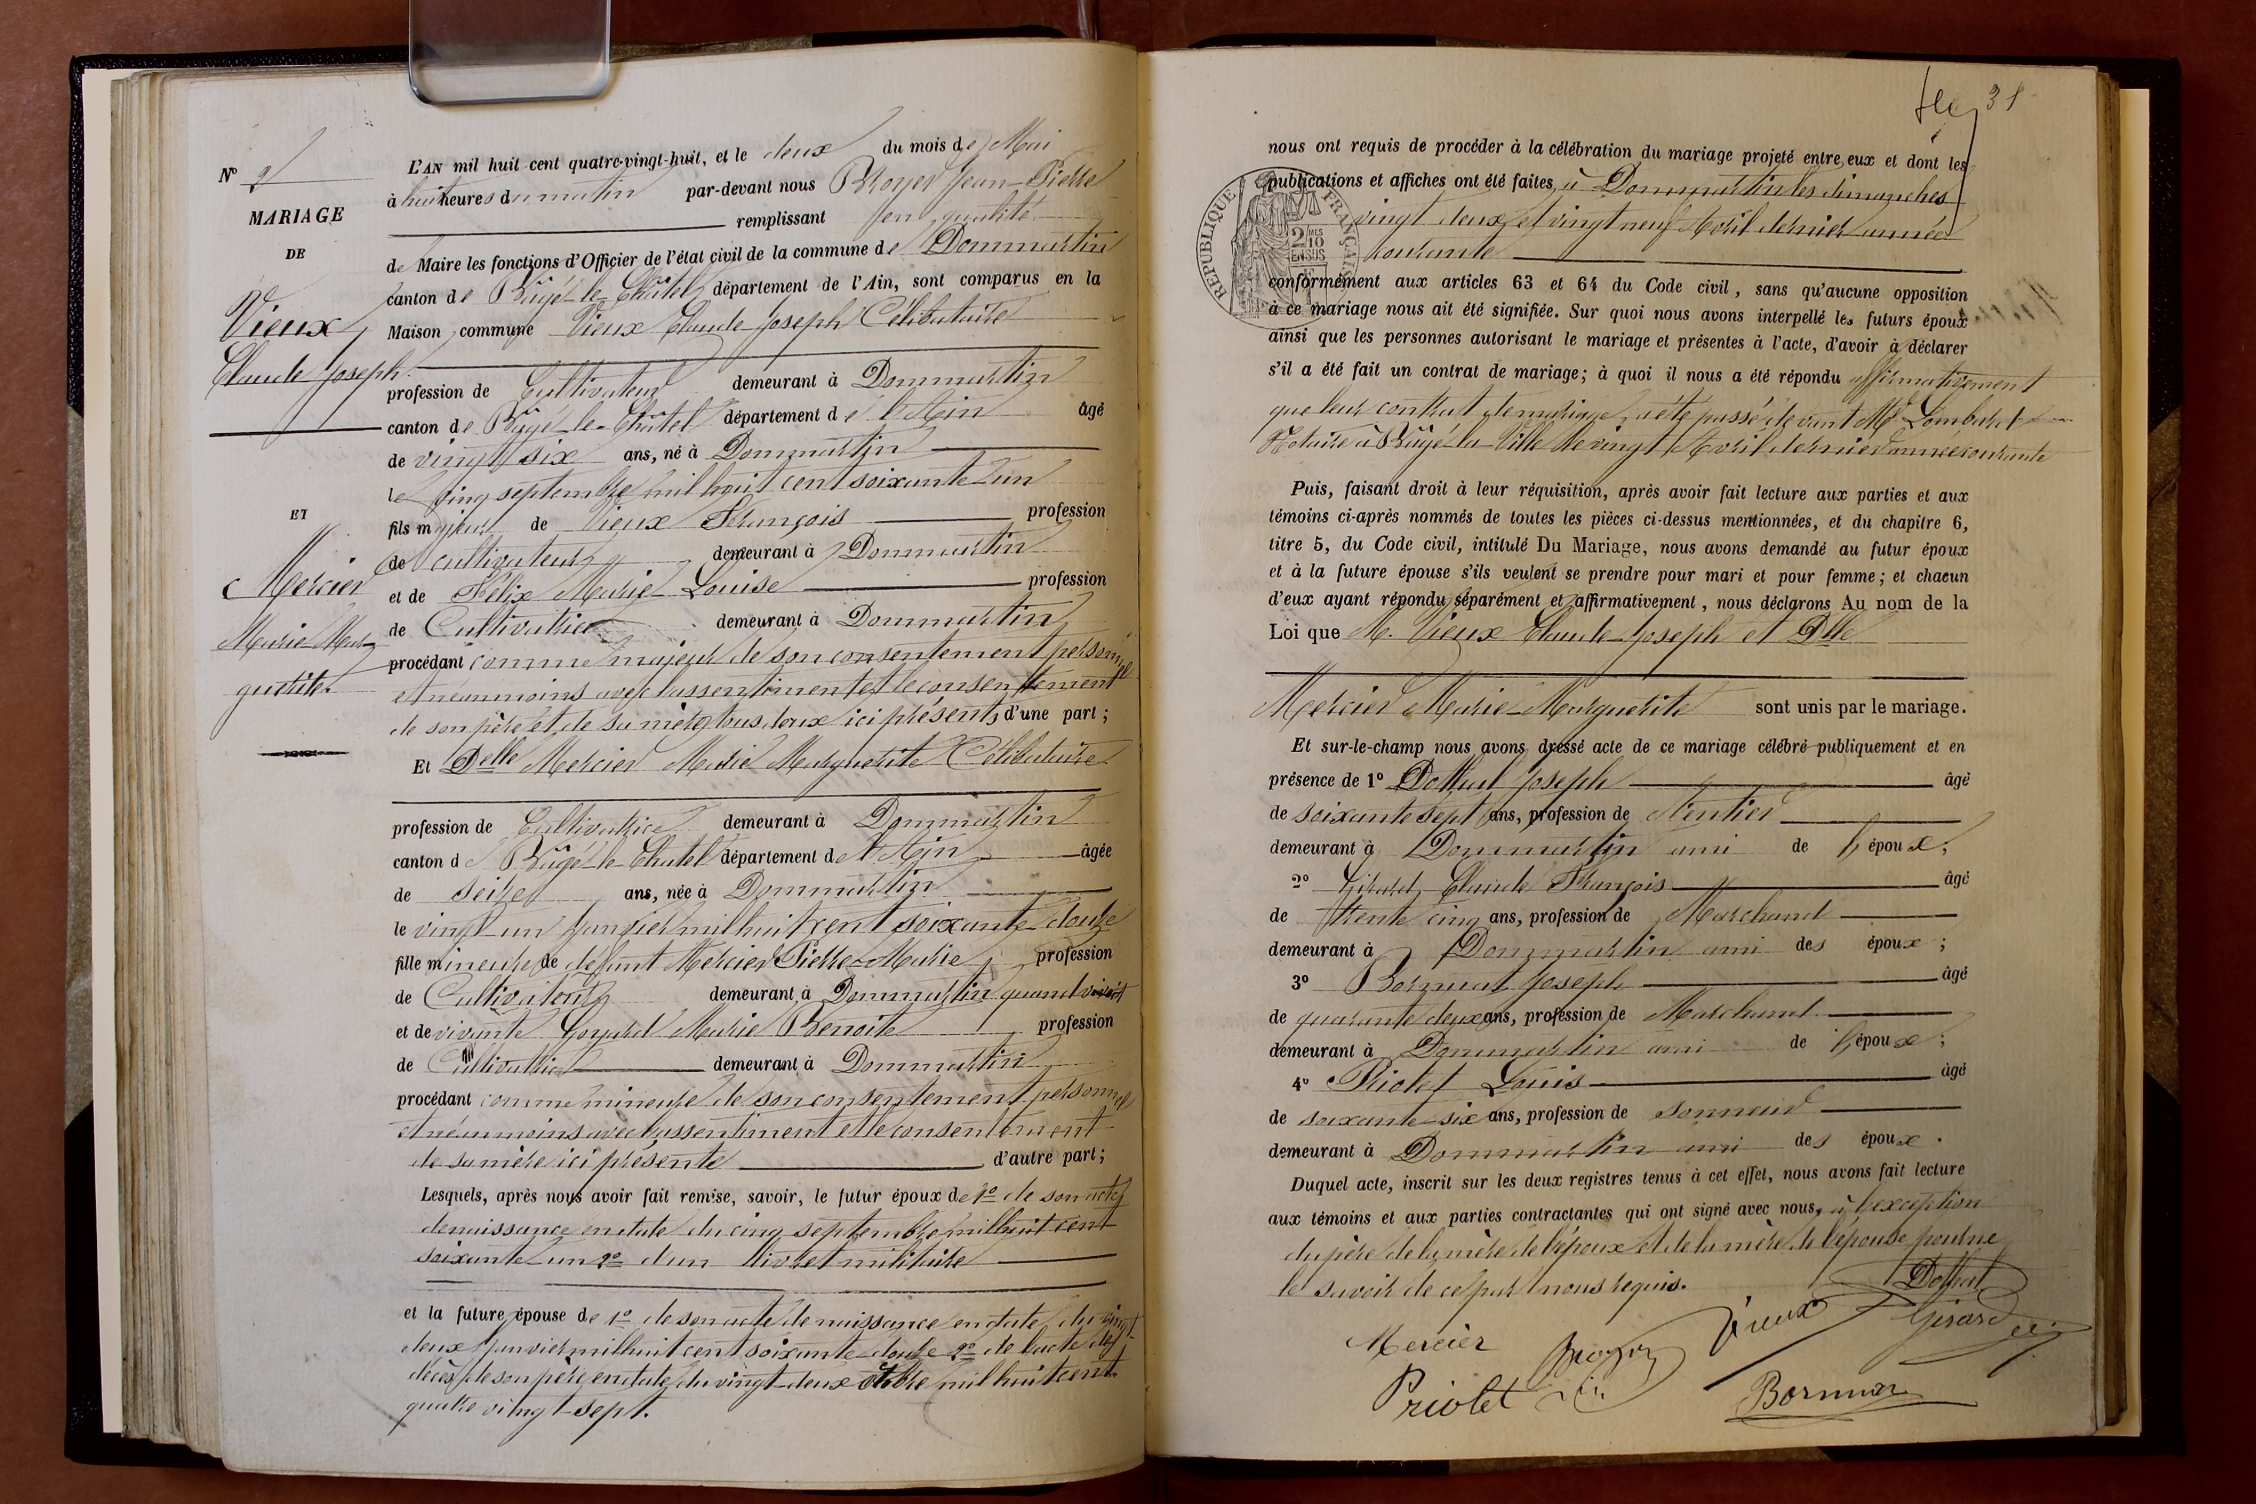 N° 2
MARIAGE
DE
Vieux
Claude Joseph
ET
Mercier
Marie Mar-
guerite
L'AN mil huit cent quatre-vingt-huit, et le deux du mois de Mai
à huit heures du matin par-devant nous Broyer Jean-Pierre
remplissant en qualité
de Maire les fonctions d'Officier de l'état civil de la commune de Dommartin
canton de Bâgé-le-Châtel département de l'Ain, sont comparus en la
Maison commune Vieux Claude Joseph Célibataire
profession de Cultivateur demeurant à Dommartin
canton de Bâgé-le-Châtel département de l'Ain âgé
de vingt six ans, né à Dommartin
le cinq septembre mil huit cent soixante un
fils majeur de Vieux François profession
de cultivateur demeurant à Dommartin
et de Félix Marie Louise profession
de Cultivatrice demeurant à Dommartin
procédant comme majeur de son consentement personnel
et néanmoins avec l'assentiment et le consentement
de son père et de sa mère tous deux ici présents d'une part;
Et Delle Mercier Marie Marguerite Célibataire
profession de Cultivatrice demeurant à Dommartin
canton de Bâgé-le-Châtel département de l'Ain âgée
de seize ans, née à Dommartin
le vingt un Janvier mil huit cent soixante-douze
fille mineure de défunt Mercier Pierre-Marie profession
de Cultivateur demeurant à Dommartin quand vivait
et de vivante Goyard Marie Benoite profession
de Cultivatrice demeurant à Dommartin
procédant comme mineure de son consentement personnel
et néanmoins avec l'assentiment et le consentement
de sa mère ici présente d'autre part;
Lesquels, après nous avoir fait remise, savoir, le futur époux de 1o de son acte
de naissance en date du cinq septembre mil huit cent
soixante un 2o d'un livret militaire
et la future épouse de 1o de son acte de naissance en date du vingt-
deux Janvier mil huit cent soixante-douze 2o de l'acte de
décès de son père en date du vingt-deux octobre mil huit cent
quatre vingt-sept.
31
nous ont requis de procéder à la célébration du mariage projeté entre eux et dont les
publications et affiches ont été faites, à Dommartin les dimanches
vingt deux et vingt neuf Avril dernier année
courante
RÉPUBLIQUE FRANÇAISE
2/10 MES EN SUS
conformément aux articles 63 et 64 du Code civil, sans qu'aucune opposition
à ce mariage nous ait été signifiée. Sur quoi nous avons interpellé les futurs époux
ainsi que les personnes autorisant le mariage et présentes à l'acte, d'avoir à déclarer
s'il a été fait un contrat de mariage; à quoi il nous a été répondu affirmativement
que leur contrat de mariage a été passé devant Me Lombard
Notaire à Bâgé-la-Ville le vingt Avril dernier année courante
Puis, faisant droit à leur réquisition, après avoir fait lecture aux parties et aux
témoins ci-après nommés de toutes les pièces ci-dessus mentionnées, et du chapitre 6,
titre 5, du Code civil, intitulé Du Mariage, nous avons demandé au futur époux
et à la future épouse s'ils veulent se prendre pour mari et pour femme; et chacun
d'eux ayant répondu séparément et affirmativement, nous déclarons Au nom de la
Loi que M. Vieux Claude Joseph et Dlle
Mercier Marie-Marguerite sont unis par le mariage.
Et sur-le-champ nous avons dressé acte de ce mariage célébré publiquement et en
présence de 1o Joseph âgé
de soixante sept ans, profession de Rentier
demeurant à Dommartin ami de l'époux;
2o Girard Claude François âgé
de trente cinq ans, profession de Marchand
demeurant à Dommartin ami des époux;
3o Joseph âgé
de quarante deux ans, profession de Marchand
demeurant à Dommartin ami de l'époux;
4o Priolet Louis âgé
de soixante-six ans, profession de sonneur
demeurant à Dommartin ami des époux.
Duquel acte, inscrit sur les deux registres tenus à cet effet, nous avons fait lecture
aux témoins et aux parties contractantes qui ont signé avec nous, à l'exception
du père de la mère de l'époux et de la mère de l'épouse pour ne
le savoir de ce par nous requis.
Vieux Girard
Mercier Broyer
Priolet